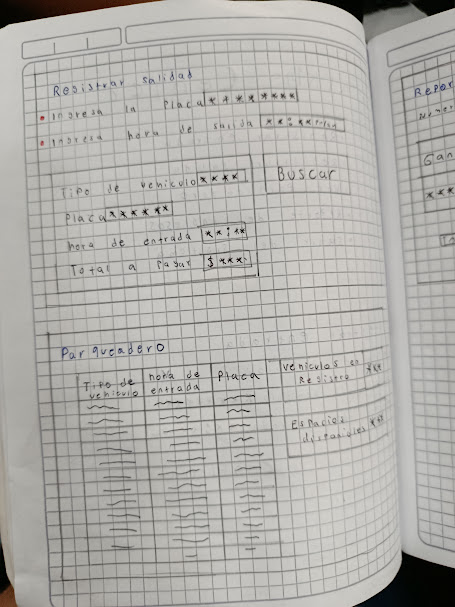 Registrar salida
• Ingresa la Placa ********
• Ingresa hora de salida **:**
Tipo de vehiculo ****
Placa ******
hora de entrada **:**
Total a Pagar $ ***
Buscar
Parqueadero
Tipo de vehiculo
hora de entrada
Placa
vehiculos en
Registro ***
Espacios
***
Repor
Gan
***